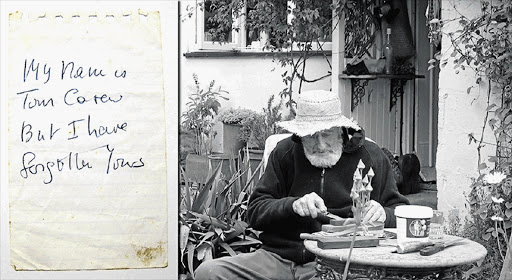 My Name is
Tom Carew
But I have
forgotten Yours